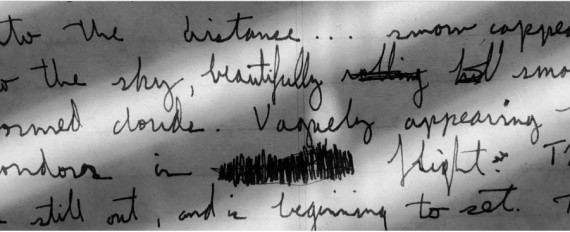 to the distance... snow cappe
to the sky, beautifully rolling
ormed clouds. Vaguely appearing
ondors in flight." T
still out, and is beginning to set. T